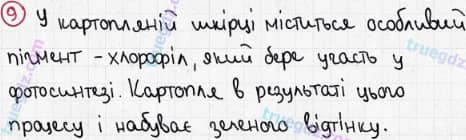 9 У картопляній шкірці міститься особливий
пігмент - хлорофіл, який бере участь у
фотосинтезі. Картопля в результаті цього
процесу і набуває зеленого відтінку.
truegdz
truegdz
truegdz